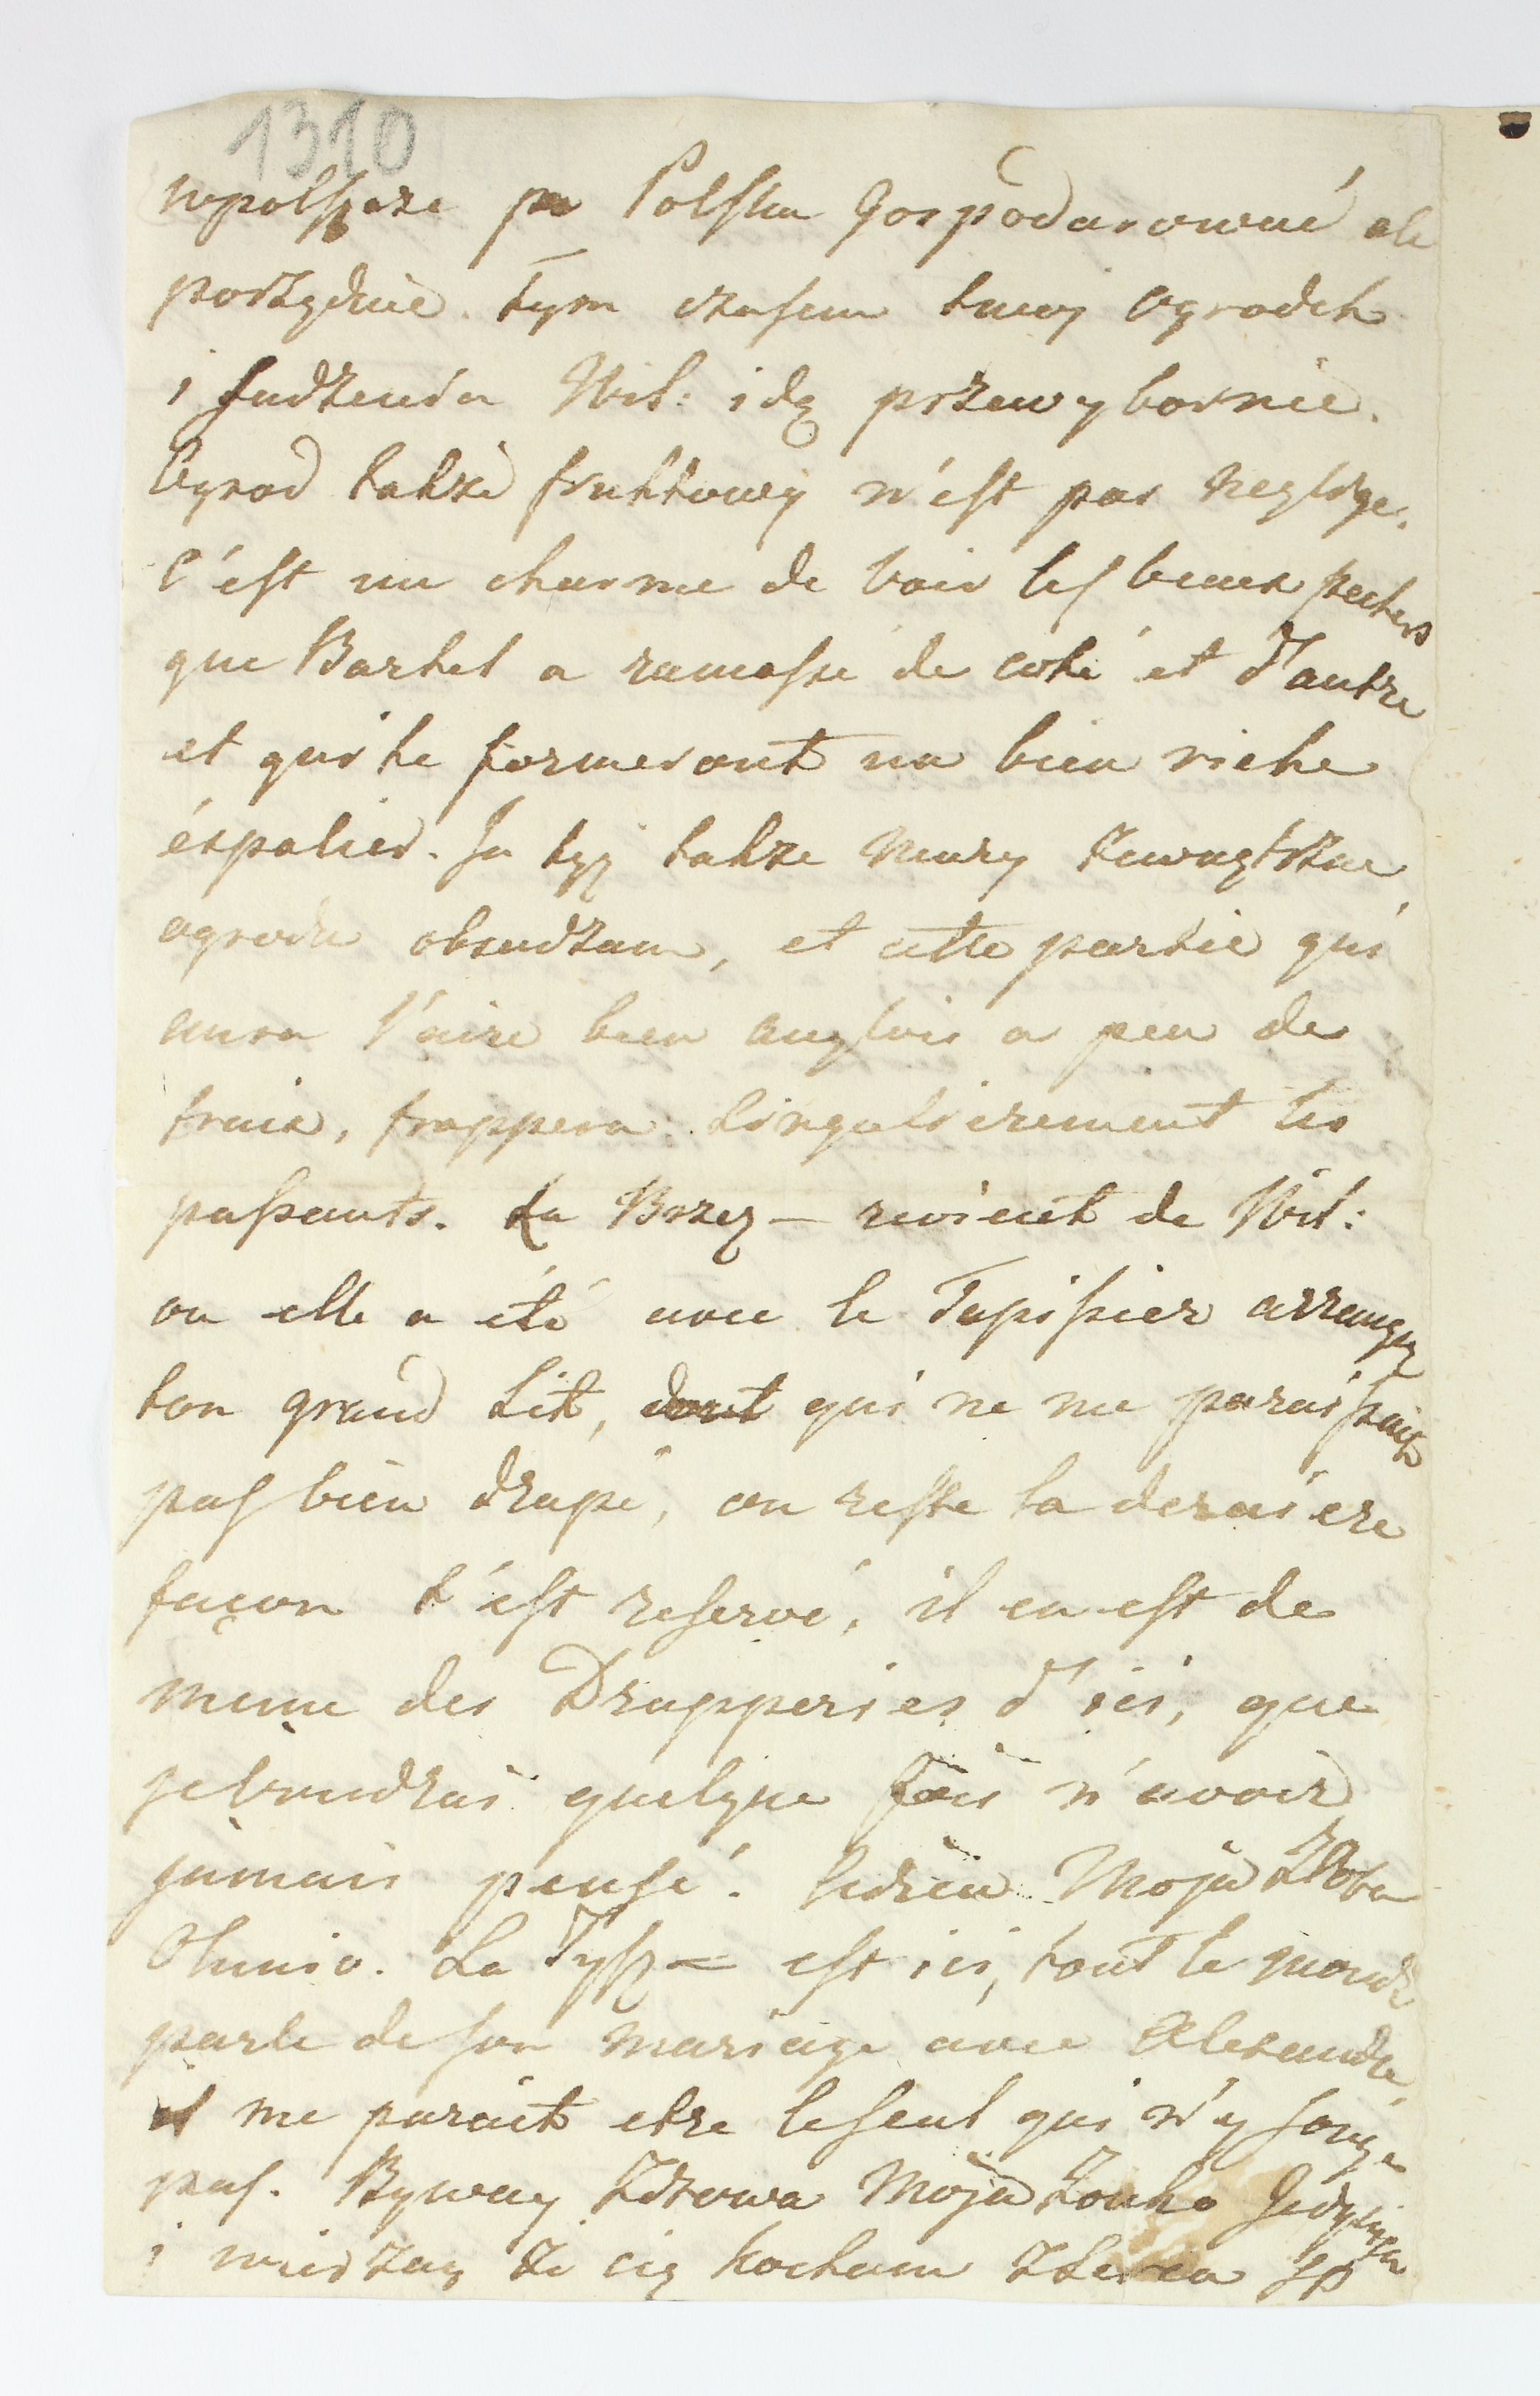 1310
w polszcze po Polsku Gospodarować ale
porządnie. Tym czasem twoy ogrodek
i sadzenia Wil: idą przewybornie.
Ogrod takze fruktowy n'est pas neglige.
C'est un charme de voir les beaux pechers
que Bartel a ramassé de coté et d'autre
et qui te formeront un bien riche
éspalier. Ja tyz takze mury zewnątrzne
ogrodu obsadzam, et cette partie qui
aura l'aire bien anglois a peu de
frais, frappera singulierement les
passants. La Brzez — revient de Wil:
ou elle a été avec le Tapissier arranger
ton grand Lit, dont qui ne me paraissait
pas bien drapé, au reste la derniere
façon t'est reservé, il en est de
meme des Drapperies d'ici, que
je voudrais quelque fois n'avoir
jamais pensé. Adieu Moja Złota
Olunio. La Tysz = est ici, tout le monde
parle de son mariage avec Alexandre,
il me parait etre le seul qui n'y songe
pas. Byway Zdrowa Moja Zonko Jedyna
i wierzay że cię kocham z serca SP